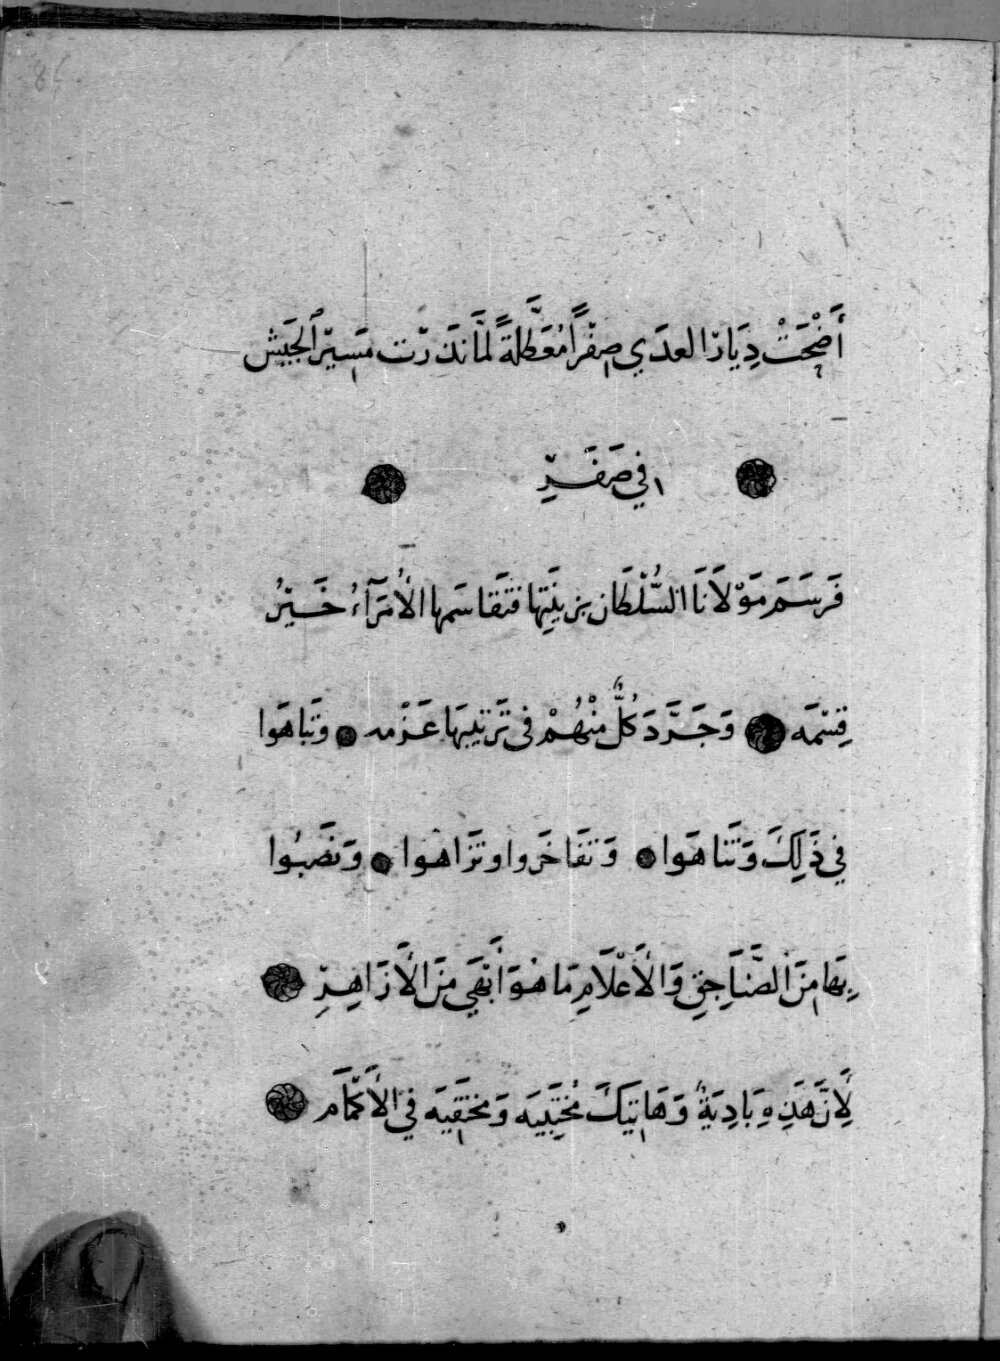 أَضْحَتْ دِيَارُ العدَي صِفْرًا مُعَطَّلَةً لمَّا نَدَرَت مَسِيرَ الجَيش
في صَفَرِ
فَرَسَمَ مَوْلَانَا السُّلْطَان بزينَتِها فتَقاسَمها الأُمَرَآءُ خَيْرُ
قِسْمَه وَجَرَّدَ كُلٌّ مِنْهُمْ في تَرتيبهَا عَزْمه وتَباهَوا
في ذَلِكَ وَتَناهَوا وَتَفَاخَروا وتزَاهوا وَنَصبُوا
بِهَا مِنَ الصَّنَاجِقِ وَالأَعْلَامِ مَا هُوَ أَبْهَي مِنَ الأَزَاهِرِ
لِأَنَّ هَذِهِ بَادِيَةٌ وَهَاتِيكَ مُخْتَبِيَه وَمختَفِيَه في الأَكْمَام